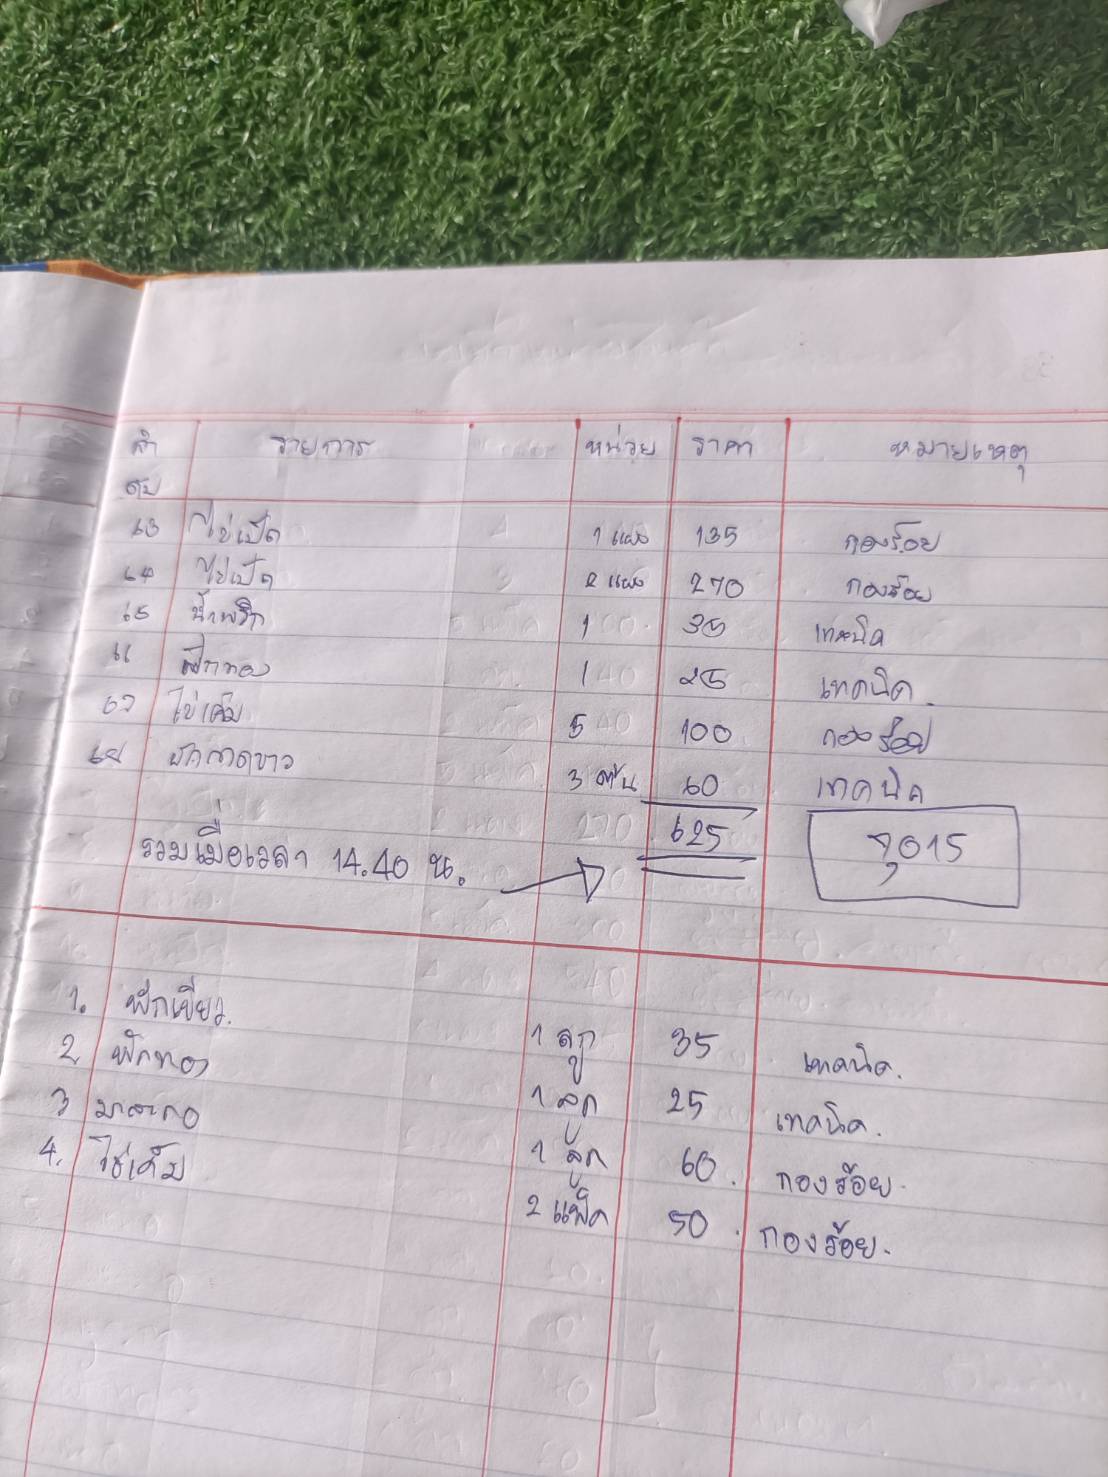 ลำดับ รายการ หน่วย ราคา หมายเหตุ
63 ไข่เป็ด 1 แผง 135 กองร้อย
64 ไข่เป็ด 2 แผง 270 กองร้อย
65 น้ำพริก 1 35 เทคนิค
66 ฟักทอง 1 25 เทคนิค.
67 ไข่เค็ม 5 100 กองร้อย
68 ผักกาดขาว 3 ต้น 60 เทคนิค
รวมเมื่อเวลา 14.40 น. 625 7,015
1. ฟักเขียว. 1 ลูก 35 เทคนิค.
2 ฟักทอง 1 ลูก 25 เทคนิค.
3 มะละกอ 1 ลูก 60. กองร้อย.
4. ไข่เค็ม 2 แพ็ค 50. กองร้อย.